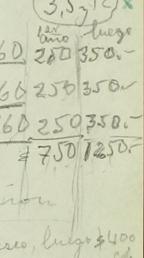 3,5 y
1er año luego
60 250 350.-
60 250 350.-
60 250 350.-
750 1250.-
luego $400